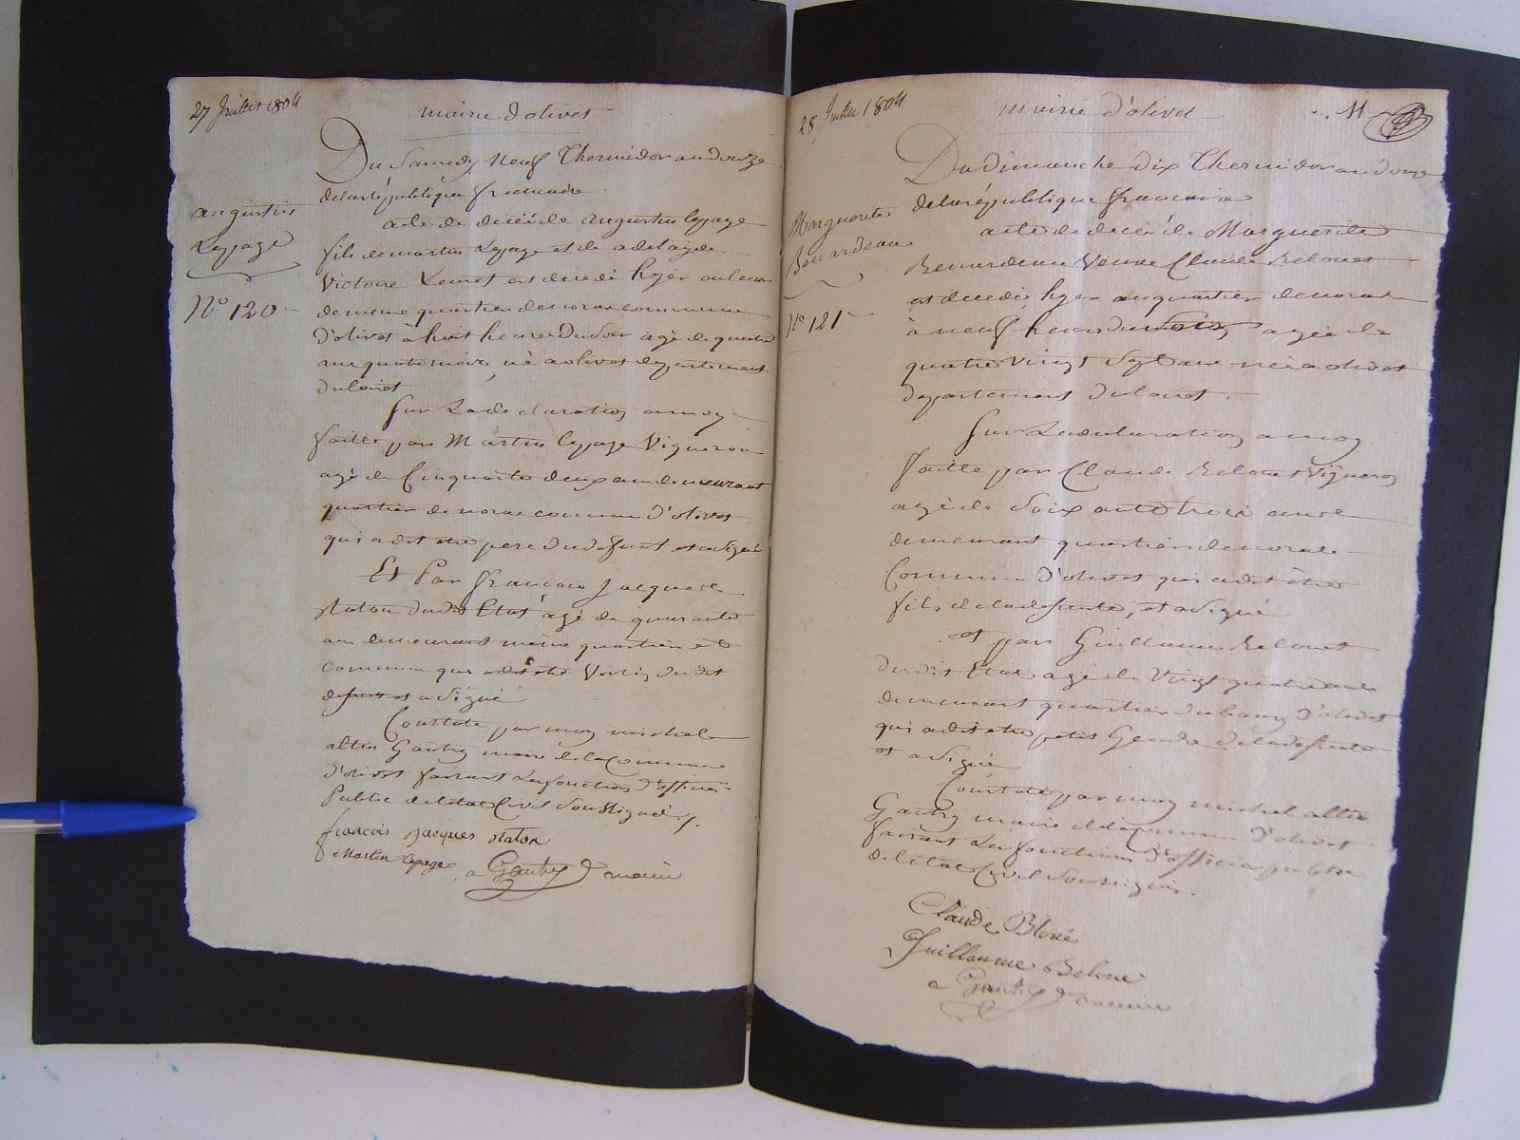 27 Juillet 1804
mairie d'olivet
Du Samedy Neuf Thermidor an douze
de la république francaise
augustin
Lepage
N° 120
acte de décè de augustin lepage
fils de martin Lepage et de adelayde
Victoire Louret est décédé hyer
demeure quartier de commune
d'olivet à huit heures du Soir agé de quatre
ans quatre mois, né a olivet departement
du loiret
Sur La declaration a moy
faitte par Martin lepage Vigneron
agé de Cinquante deux ans demeurant
quartier de commune d'olivet
qui a dit etre pere du defunt et a Signé
Et Par francois Jacques
staton dudit Etat agé de quarante
ans demeurant meme quartier et
commune qui a dit etre Voisin dudit
defunt et a Signé
Constaté par moy michel
altin Gautry maire de la Commune
d'olivet faisant Les fonctions d'officier
Public de l'état Civil Soussigné
francois Jacques staton
Martin lepage a Gautry maire
28 Juillet 1804
mairie d'olivet
11
Du Dimanche dix Thermidor an douze
de la république francaise
Marguerite
Benardeau
N° 121
acte de décè de Marguerite
Benardeau Veuve Claude Belouet
est décédée hyer au quartier de
à neuf heures du Soir agée de
quatre Vingt Sept ans née a olivet
departement du loiret.
Sur La declaration a moy
faitte par Claude Belouet Vigneron
agé de Soixante trois ans
demeurant quartier de
Commune d'olivet qui a dit être
fils de la defunte, et a Signé
et par Guillaume Belouet
dudit Etat agé de Vingt quatre ans
demeurant quartier du bourg d'olivet
qui a dit etre petit de la defunte
et a Signé
Constaté par moy michel altin
Gautry maire de la commune d'olivet
faisant Les fonctions d'officier public
de l'état Civil Soussigné.
Claude Bloué
Guillaume Beloue
a Gautry maire